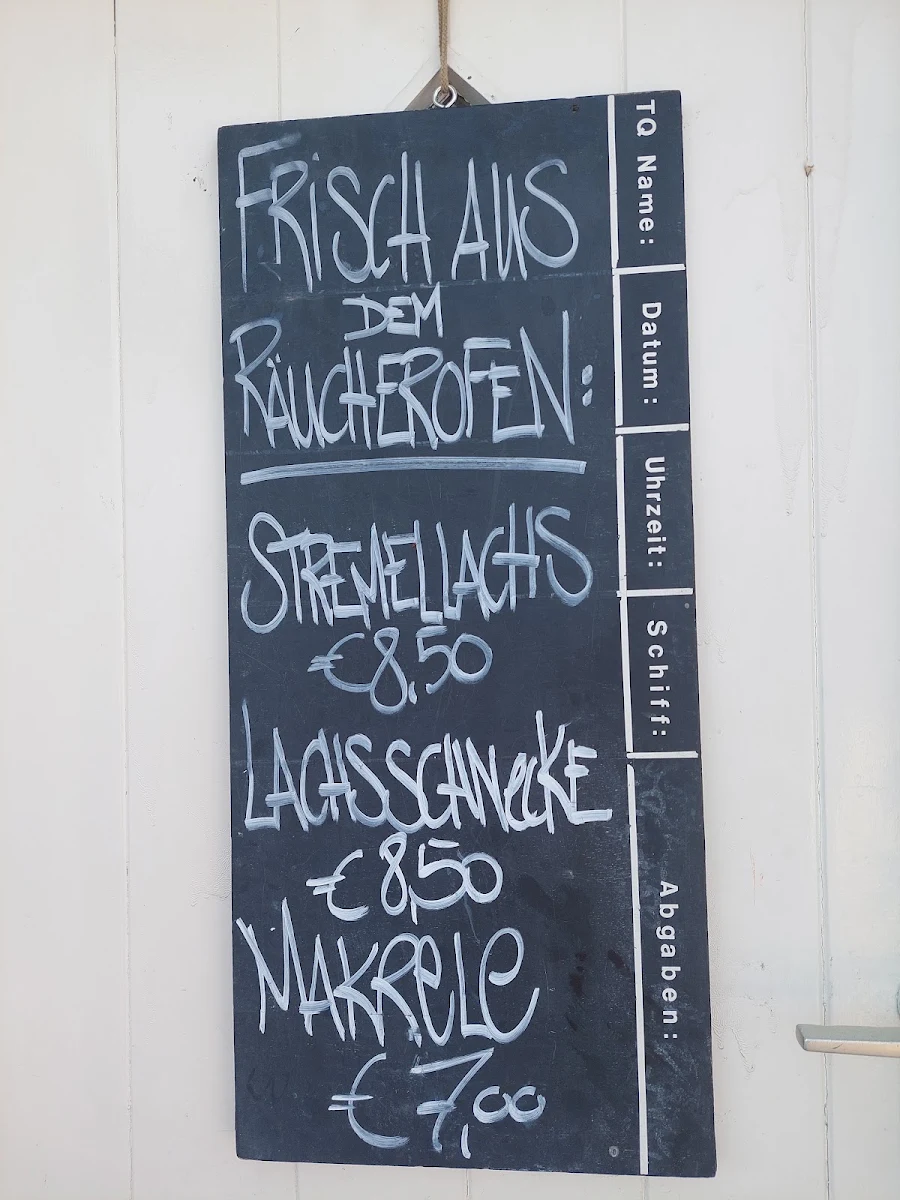 FRISCH AUS
DEM
RÄUCHEROFEN:
STREMELLACHS
€8,50
LACHSSCHNECKE
€8,50
MAKRELE
€7,00
TQ Name:
Datum:
Uhrzeit:
Schiff:
Abgaben: